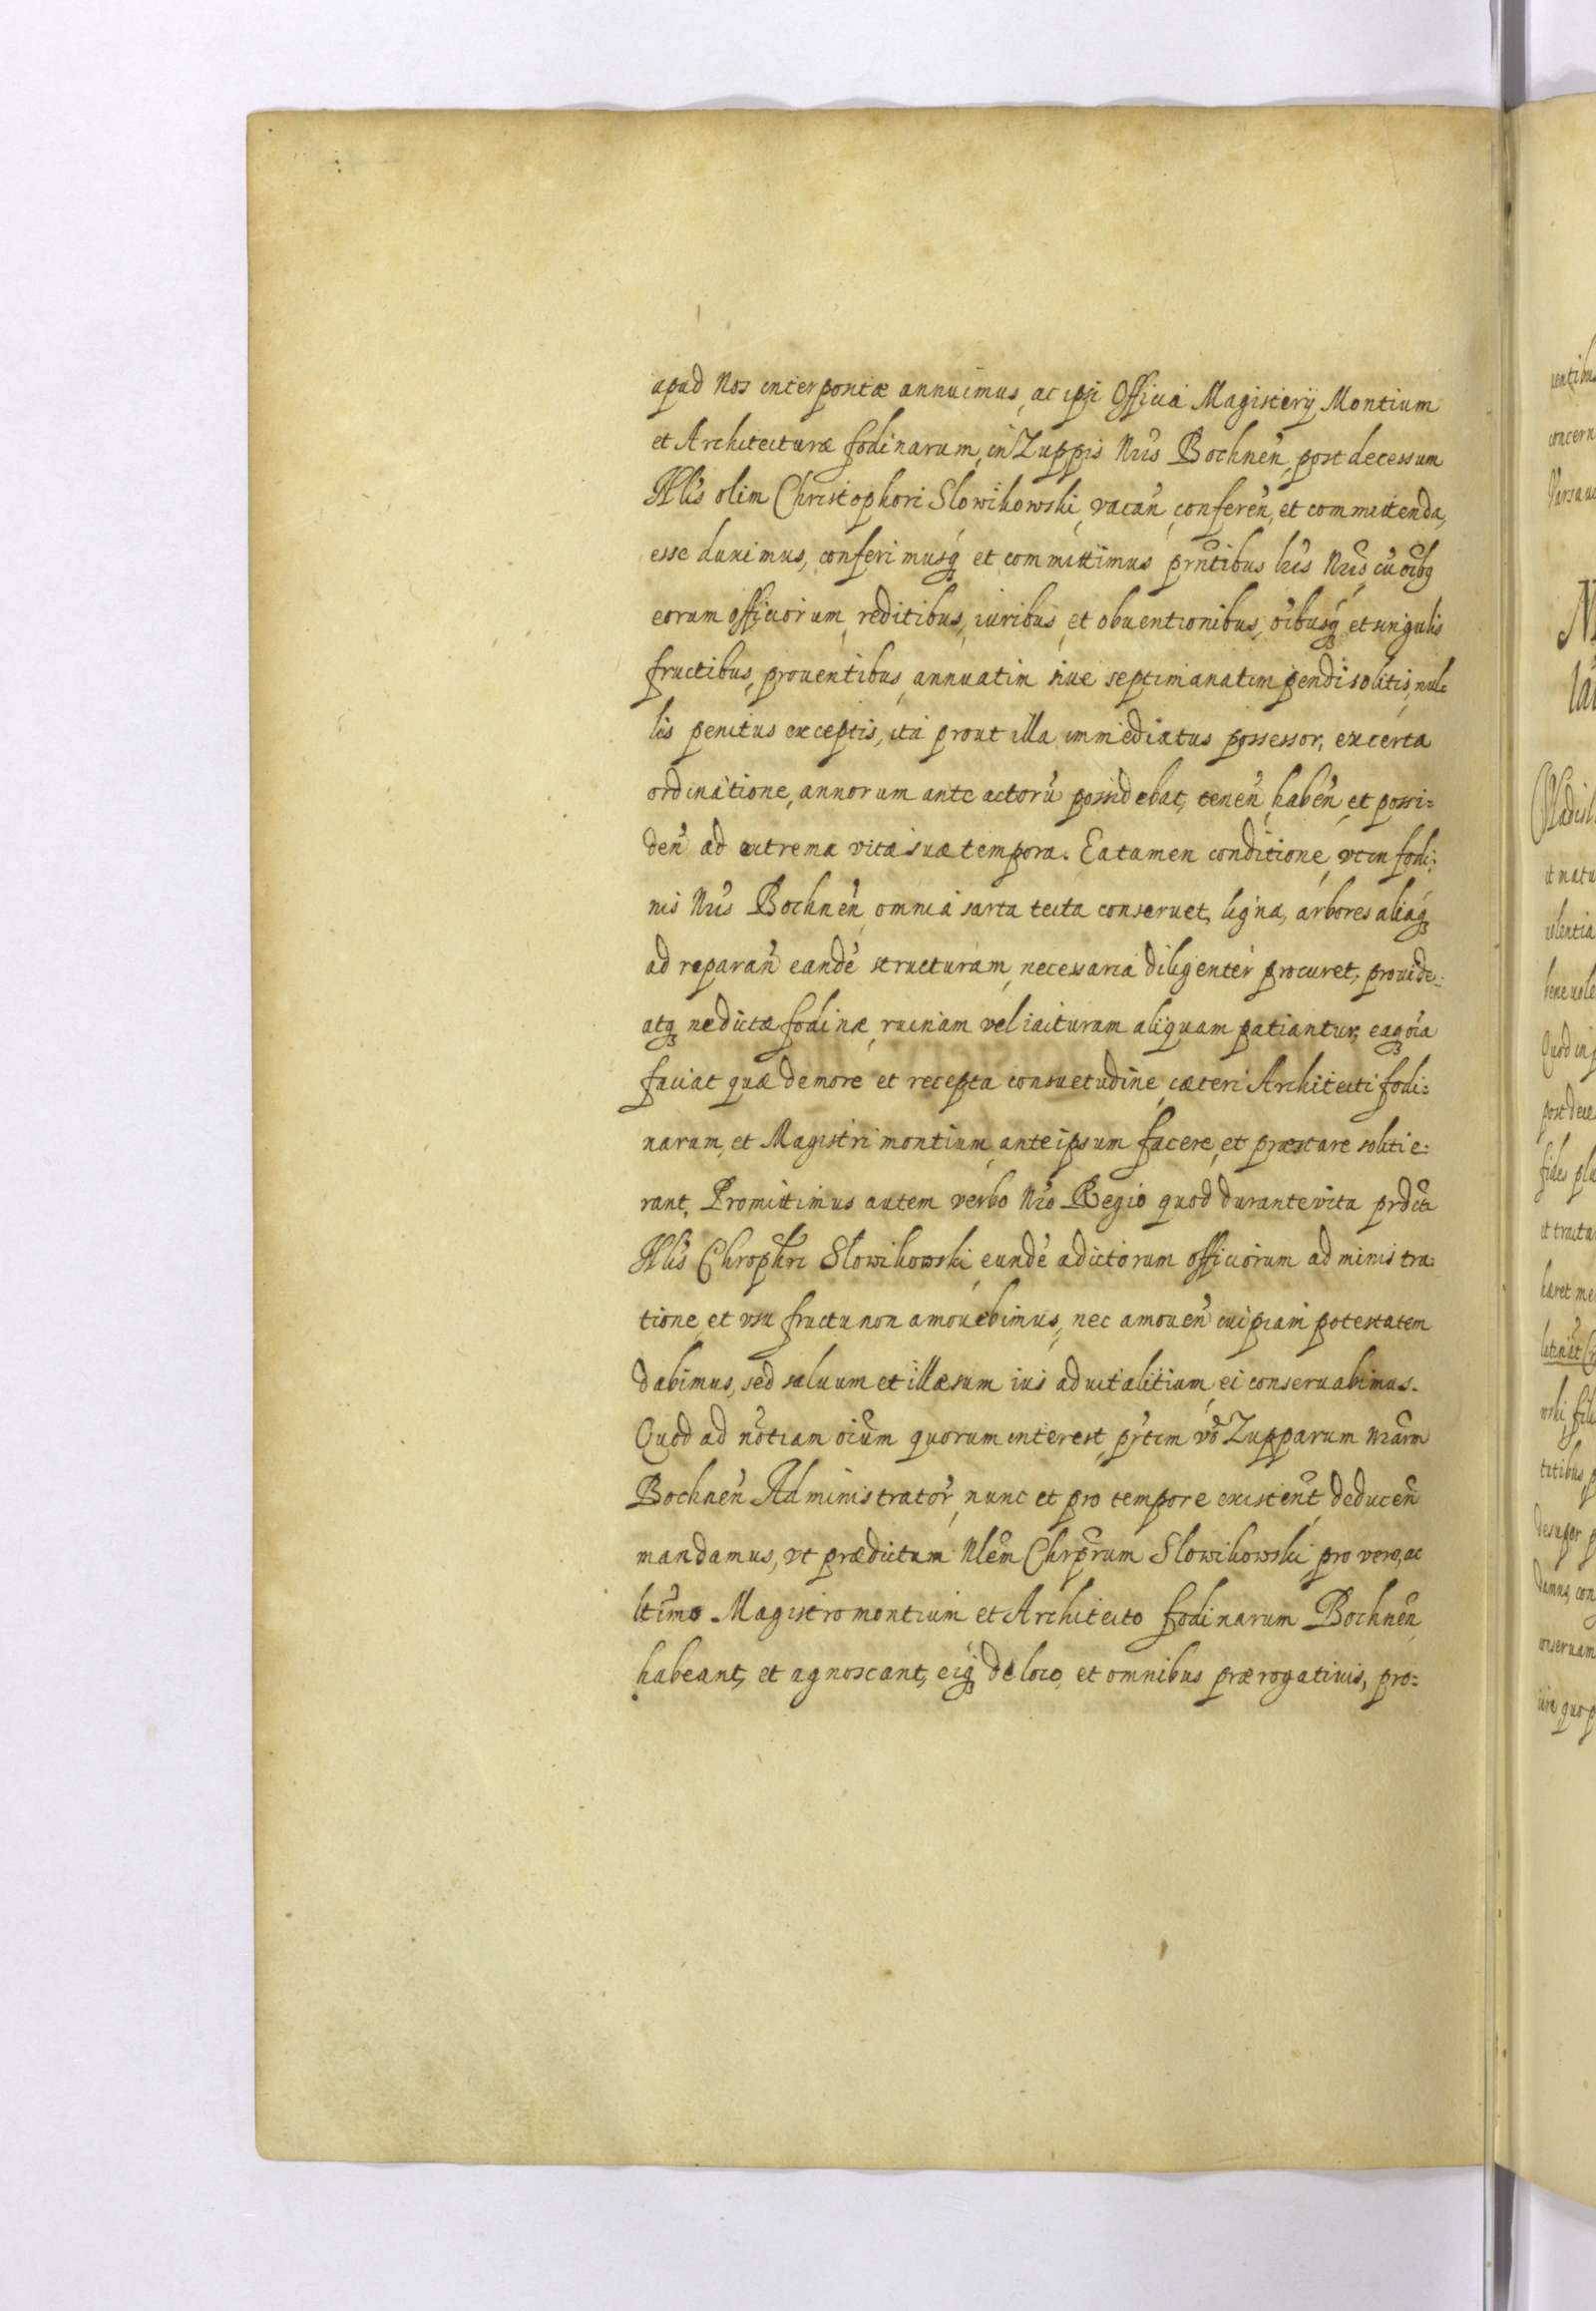 apud Nos interpositæ annuimus, ac ipsi Officia Magisterij Montium
et Architecturæ fodinarum, in Zuppis Nris Bochnen, post decessum
Nlis olim Christophori Slowikowski, vacan, conferen, et committenda,
esse duximus, conferimusq et committimus prntibus lris Nris, cu oibq
eorum officiorum, reditibus, iuribus, et obuentionibus, oibusq et singulis
fructibus, prouentibus, annuatim siue septimanatim pendi solitis, nul=
lis penitus exceptis, ita prout illa immediatus possessor, ex certa
ordinatione, annorum ante actoru possidebat, tenen, haben, et possi=
den ad extrema vitæ suæ tempora. Ea tamen conditione, vt in fodi=
nis Nris Bochnen omnia sarta tecta conseruet, ligna, arbores aliaq
ad reparan eande structuram, necessaria diligenter procuret, prouide=
atq ne dictæ fodinæ, ruinam vel iacturam aliquam patiantur, eaq oia
faciat quæ de more et recepta consuetudine, cæteri Architecti fodi=
narum, et Magistri montium, ante ipsum facere, et præstare soliti e=
rant, Promittimus autem verbo Nro Regio quod durante vita prdicti
Nlis Chrophri Slowikowski, eunde a dictorum officiorum administra=
tione, et vsu fructu non amouebimus, nec amouen cuipiam potestatem
dabimus, sed saluum et illæsum ius aduitalitium, ei conseruabimus.
Quod ad notiam oium quorum interest, prtim vo Zupparum Nrarm
Bochnen Administrator, nunc et pro tempore existent, deducen
mandamus, vt prædictum Nlem Chrprum Slowikowski, pro vero, ac
ltimo Magistro montium et Architecto fodinarum Bochnen,
habeant, et agnoscant, eiq de loco, et omnibus prærogatiuis, pro=